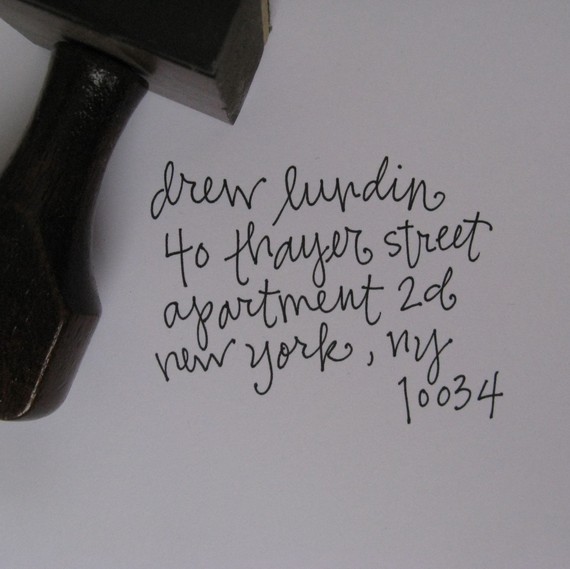 drew lundin
40 thayer street
apartment 2d
new york, ny
10034